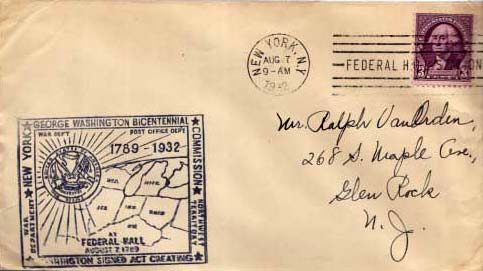 NEW YORK, N.Y.
AUG 7
9-AM
1932
FEDERAL HALL STATION
3 3
Mr. Ralph VanOrden,
268 S. Maple Ave.,
Glen Rock
N. J.
GEORGE WASHINGTON BICENTENNIAL
COMMISSION
NEW YORK
WAR DEPT.
POST OFFICE DEPT.
1789-1932
WAR DEPARTMENT
NORTHWEST TERRITORY
WIS.
MICH.
ILL.
IND.
OHIO
AT
FEDERAL HALL
AUGUST 7 1789
WASHINGTON SIGNED ACT CREATING